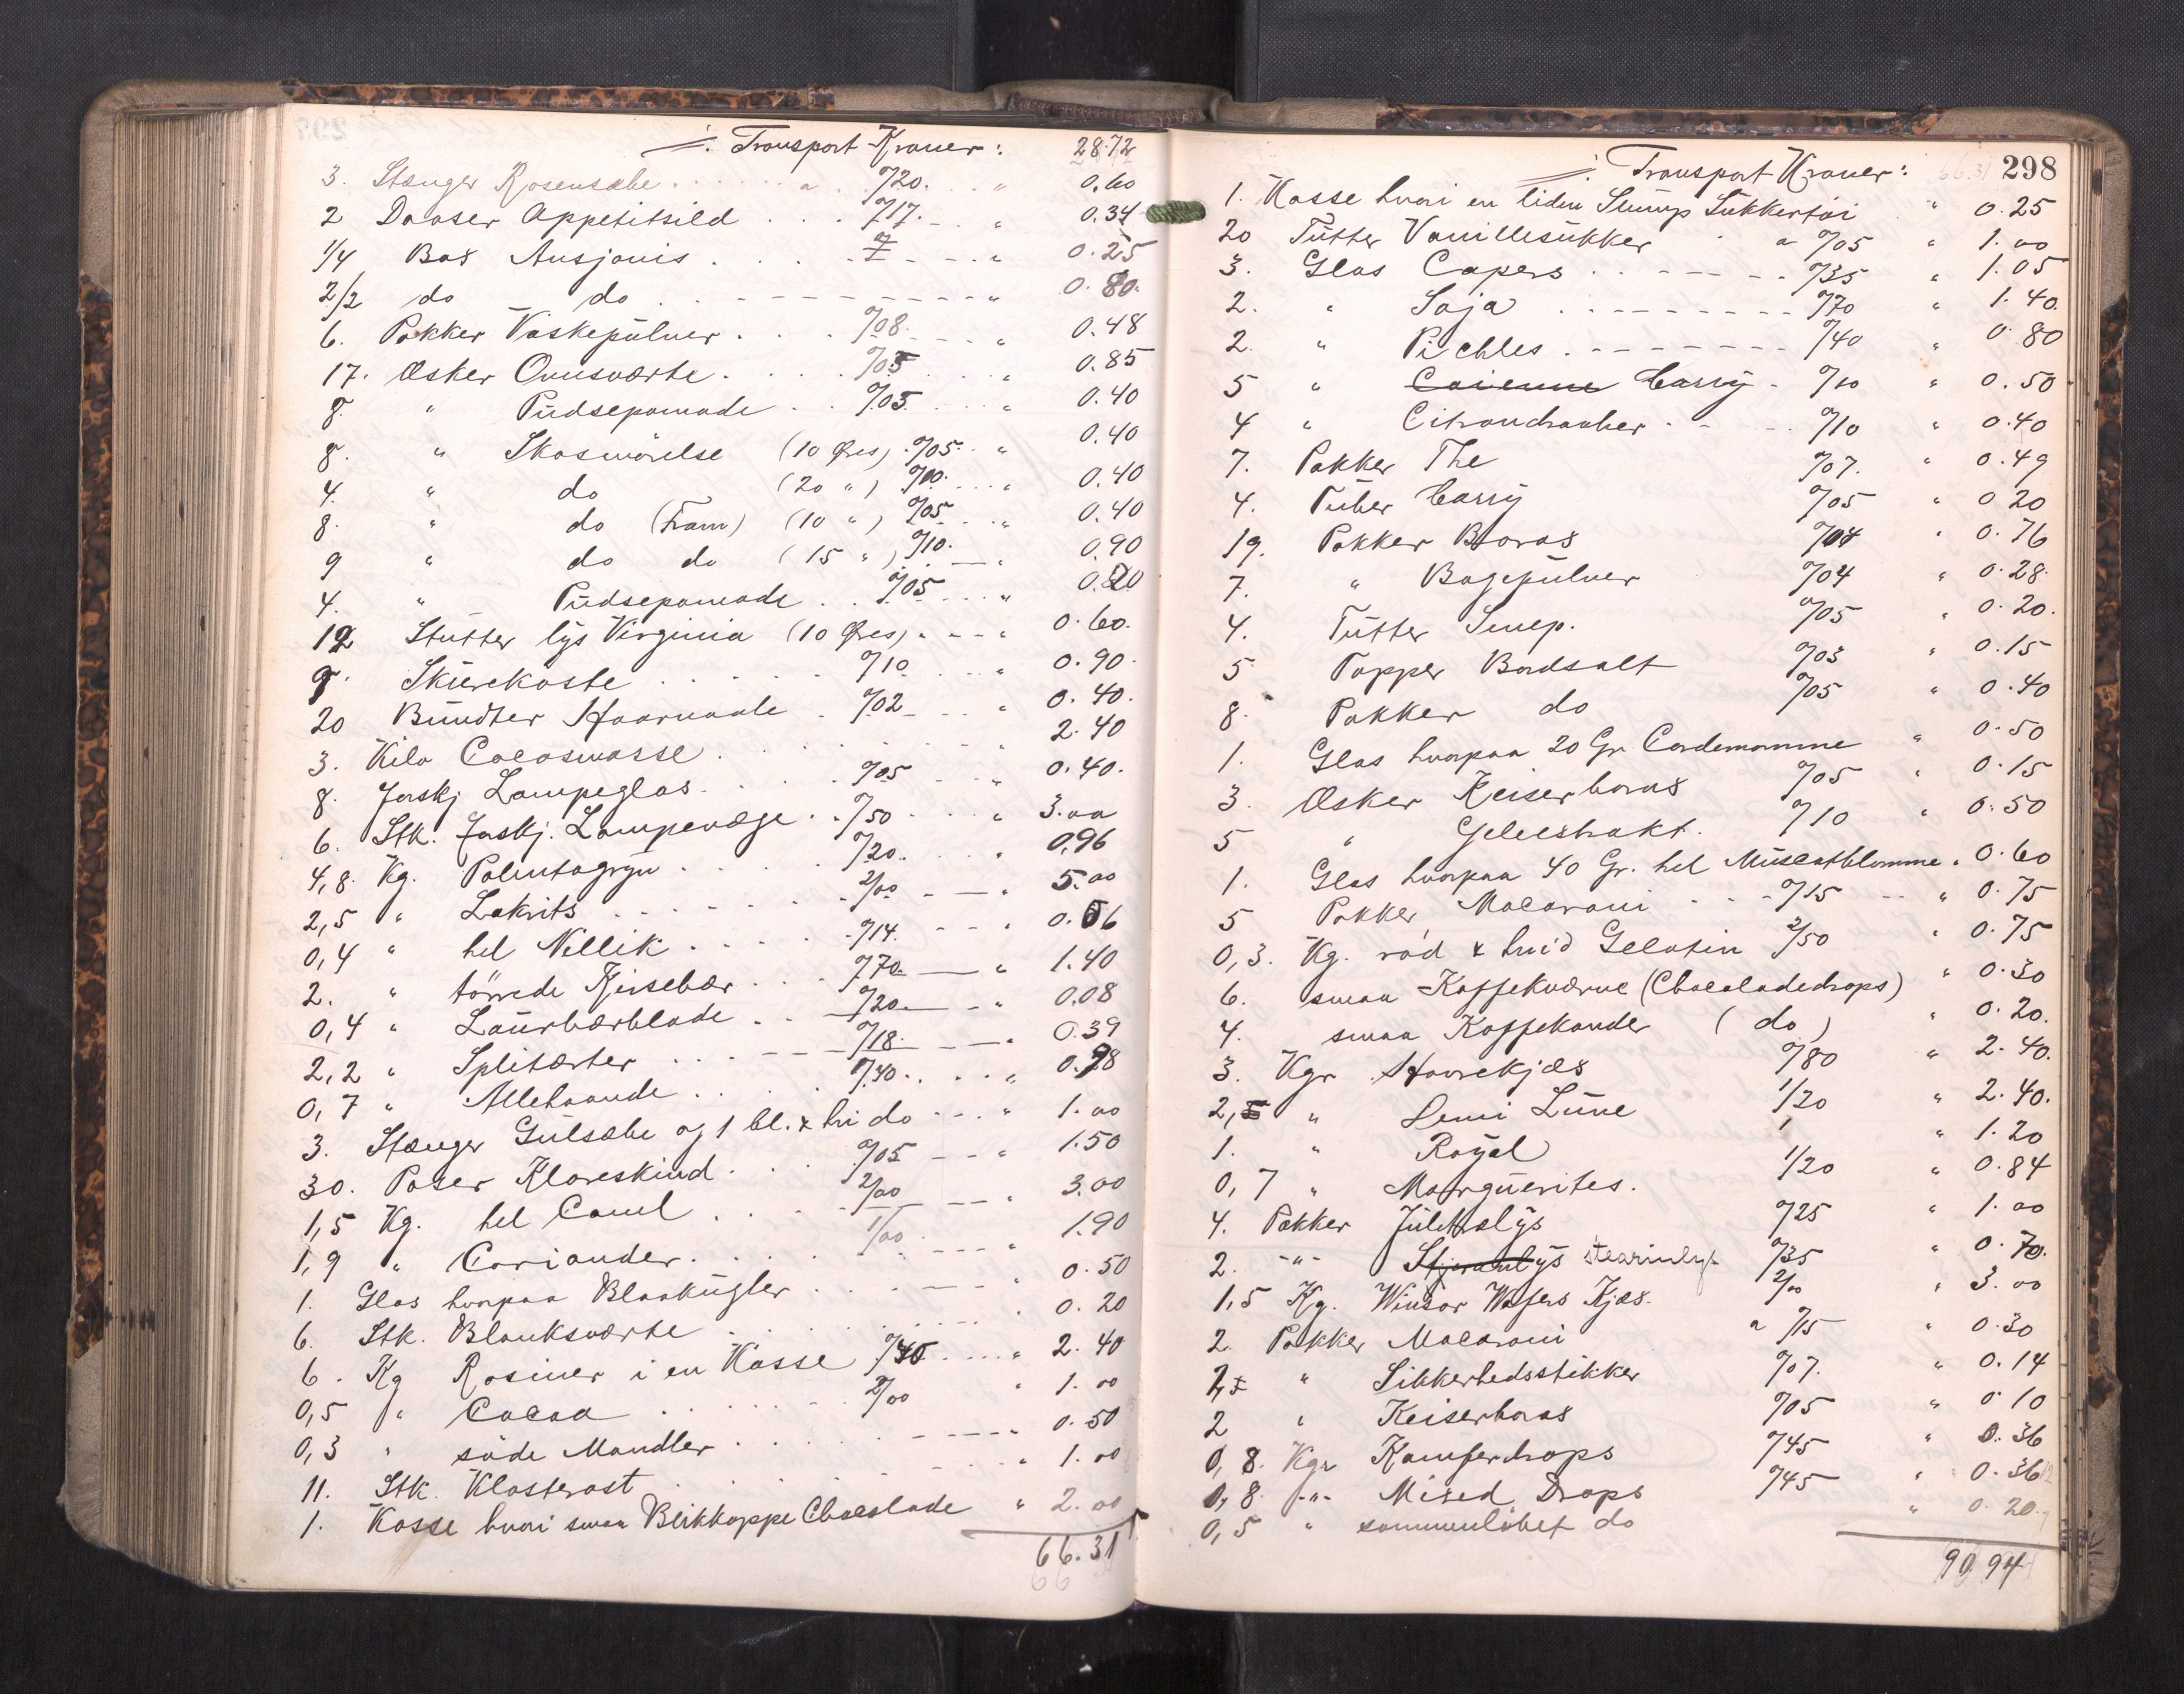 ·/. Transport Kroner: 28.72
3. Stænger Rosensæbe a %20. " 0.60
2 Daaser Appetitsild %17. " 0.34
1/4 Bas Ansjovis " 0.25
2/2 do do " 0.80.
6. Pakker Vaskepulver %08. " 0.48
17. Æsker Ovnsværte %05 " 0.85
8. " Pudsepomade %05 " 0.40
8. " Skosmörelse (10 Øres) %05 " 0.40
4. " do (20 ") %10. " 0.40
8. " do (Fram) (10 ") %05 " 0.40
9 " do do (15 ") %10. " 0.90
4. " Pudsepomade %05 " 0.20
12 Stutter lys Virginia (10 Øres) " 0.60.
9. Skurekoste %10 " 0.90.
20 Bundter Haarnaale %02 " 0.40.
3. Kilo Cocosmasse " 2.40
8. forskj Lampeglas %05 " 0.40.
6. Stk. forskj. Lampevæge %50 " 3.00
4,8. Kg. Palmtagryn %20. " 0.96
2,5 " Lakrits 2/00 " 5.00
0,4 " hel Nellik %14. " 0.56
2. " törrede Kirsebær %70 " 1.40
0,4 " Laurbærblade %20 " 0.08
2,2 " Splitærter %18. " 0.39
0,7 " Allehaande %40 " 0.28
3. Stænger Gulsæbe og 1 bl. & hv do " 1.00
30. Poser Klareskind %05 " 1.50
1,5 Kg. hel Canel 2/00 " 3.00
1,9 " Coriander 1/00 " 1.90
1. Glas hvorpaa Blaakugler " 0.50
6. Stk. Blanksværte " 0.20
6. Kg Rosiner i en Kasse %40 " 2.40
0,5 " Cacao 2/00 " 1.00
0,3 " söde Mandler " 0.50
11. Stk. Klosterost " 1.00
1. Kasse hvori smaa Blikkoppe Chocolade " 2.00
66.31
298
·/. Transport Kroner: 66.31
1. Kasse hvori en liden Slump Sukkertöi " 0.25
20 Tutter Vanillesukker a %05 " 1.00
3. Glas Capers %35 " 1.05
2. " Soja %70 " 1.40.
2. " Pickles %40 " 0.80
5 " Caienne Carry %10 " 0.50
4 " Citrondraaber %10 " 0.40
7. Pakker The %07. " 0.49
4. Tuber Carry %05 " 0 20
19. Pakker Borax %04 " 0.76
7. " Bagepulver %04 " 0.28
4. Tutter Senep. %05 " 0.20.
5 Popper Bordsalt %03 " 0.15
8. Pakker do %05 " 0.40
1. Glas hvorpaa 20 Gr. Cardemomme " 0.50
3. Æsker Keiserborax %05 " 0.15
5 " Geleestrakt. %10 " 0.50
1. Glas hvorpaa 40 Gr. hel Muscatblomme " 0.60
5 Pakker Macaroni %15 " 0.75
0,3. Kg. röd & hvid Gelatin 2/50 " 0.75
6. smaa Kaffekværne (Chocoladedrops) " 0.30
4. smaa Kaffekander (do) " 0.20.
3. Kgr Havrekjæs %80 " 2.40.
2, " Demi Lune 1/20 " 2.40.
1. " Royal " 1.20
0,7 " Marguerites. 1/20 " 0.84
4. Pakker Juletrælys %25 " 1.00
2. -"- Stjernelys stearinlys %35 " 0.70.
1,5 Kg. Winsor Wafers Kjæs. 2/00 " 3.00
2. Pakker Macaroni a %15 " 0.30
2 " Sikkerhedsstikker %07. " 0.14
2 " Keiserborax %05 " 0 10
0,8. Kgr Kamferdrops %45 " 0.36
0,8. -"- Mixed Drops %45 " 0.36
0,5 " sammenlöbet do " 0.20
90 94